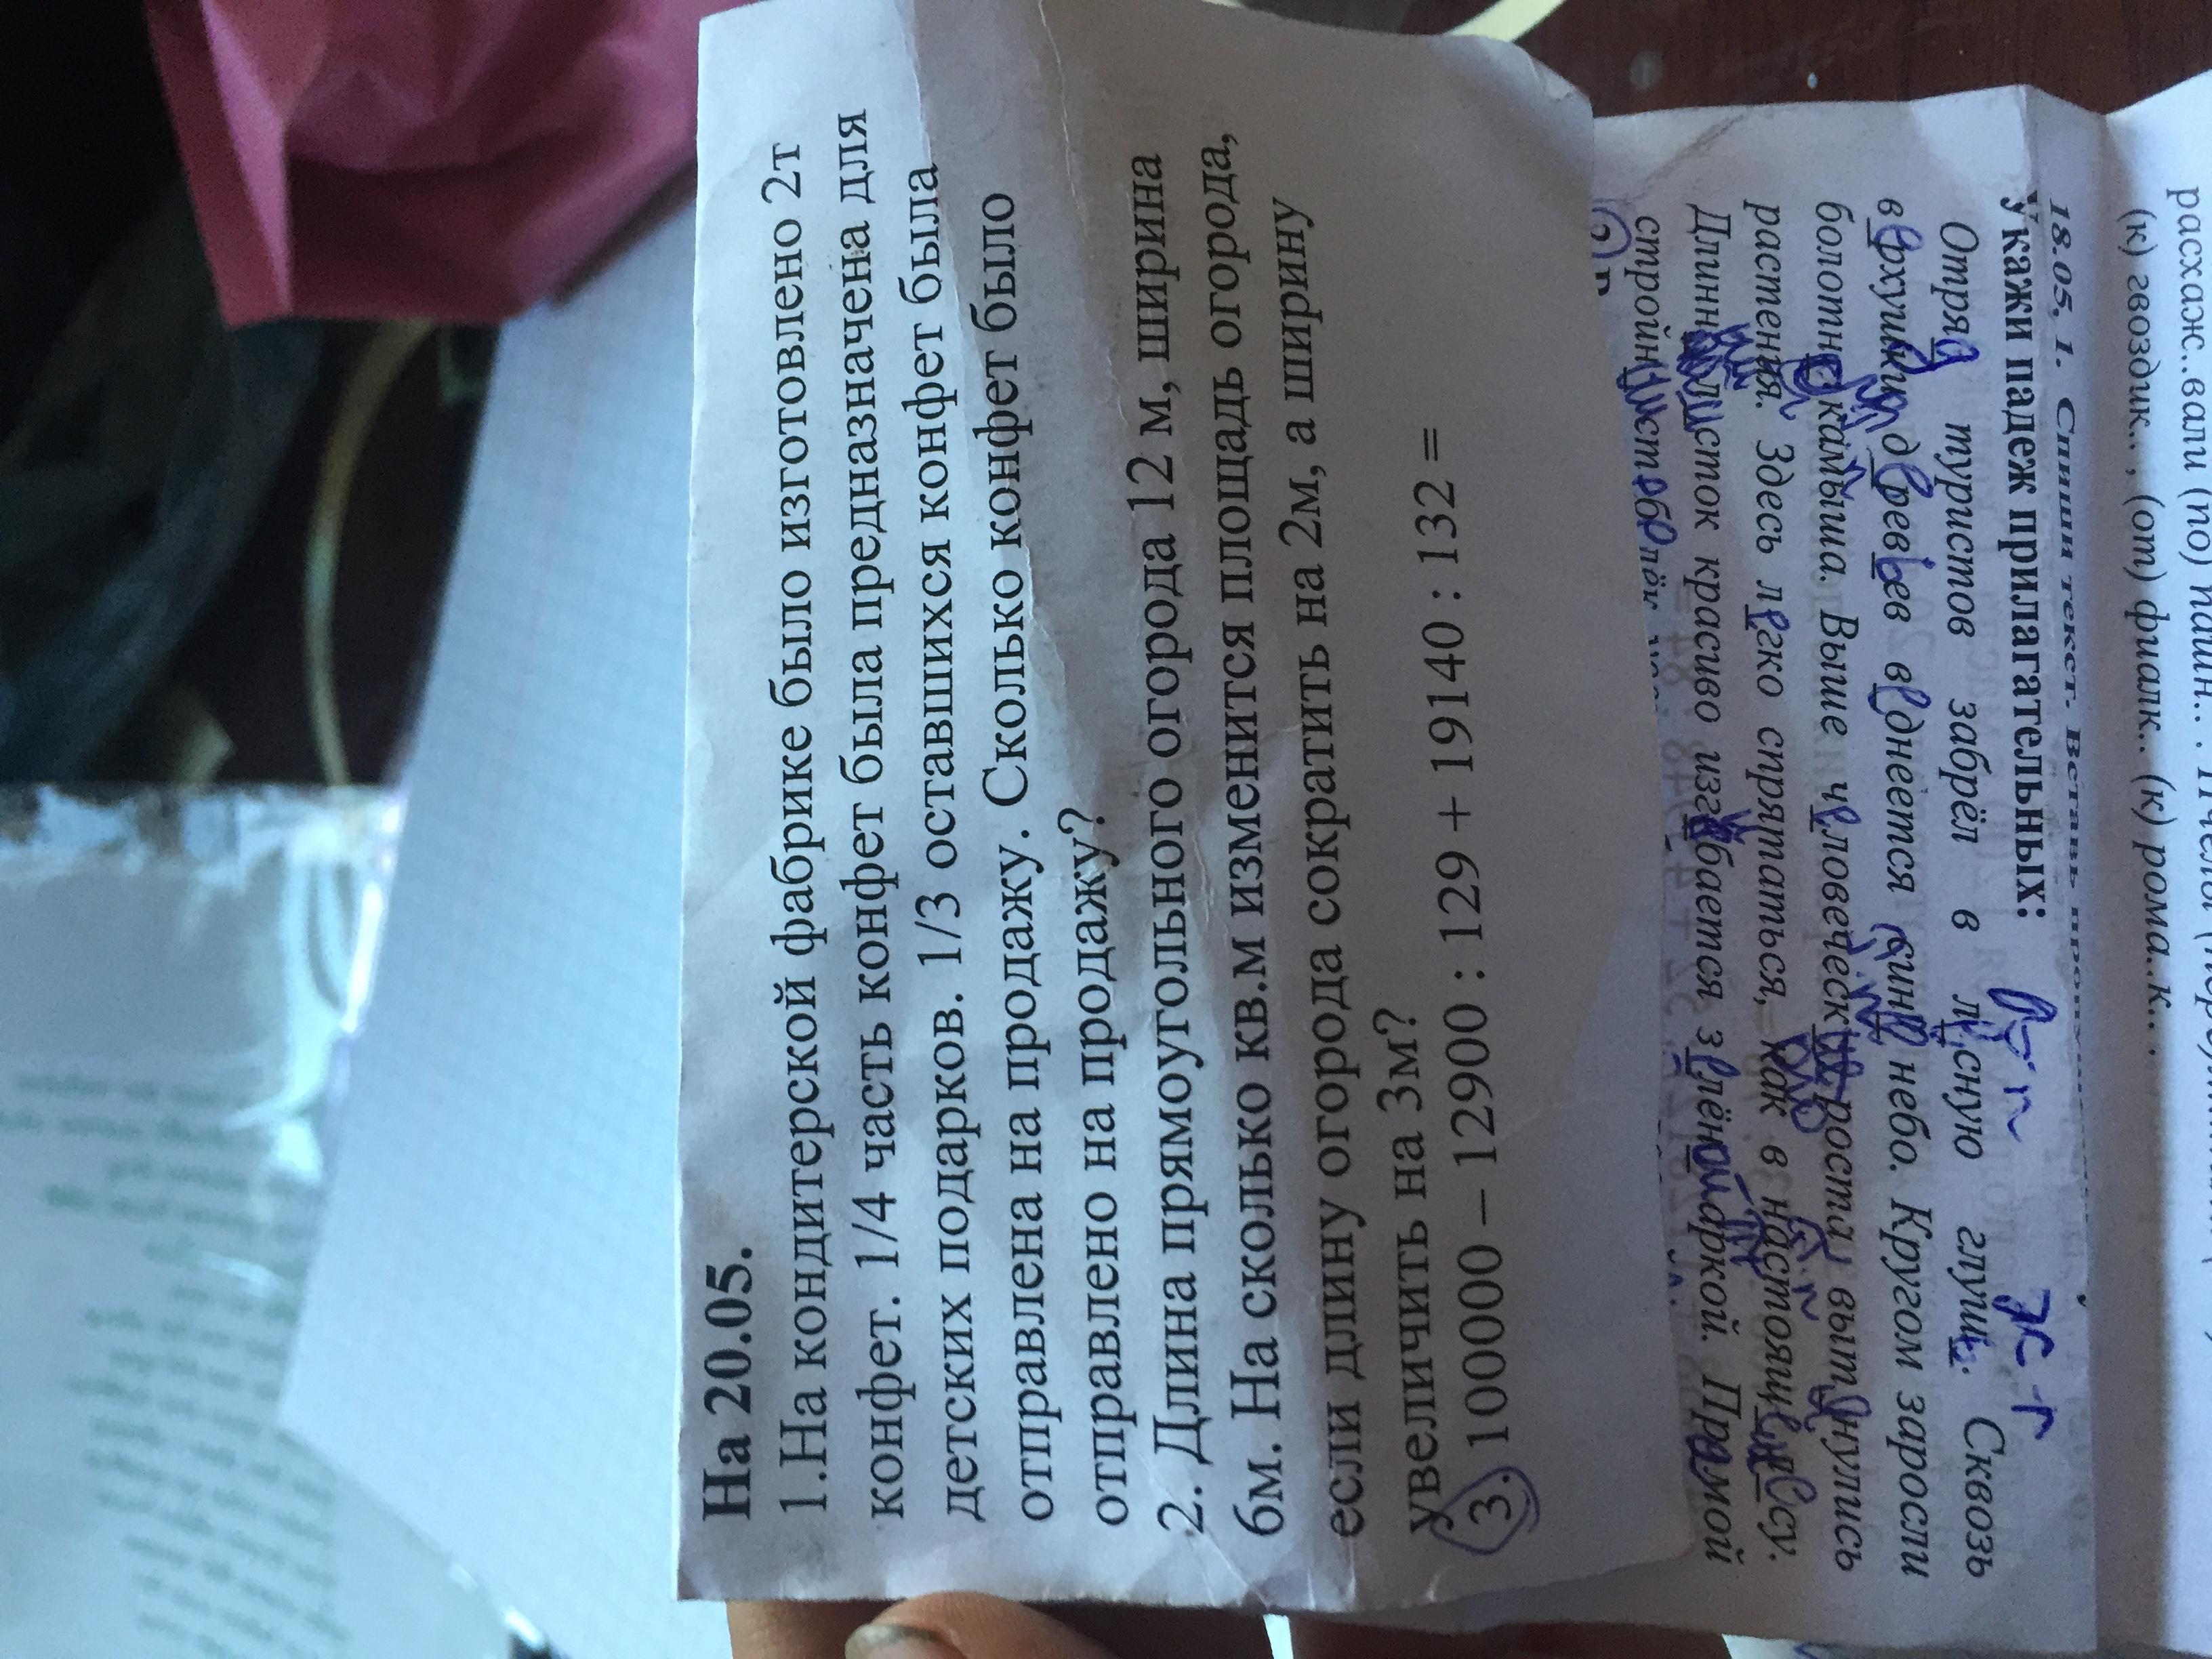 На 20.05.
1.На кондитерской фабрике было изготовлено 2т
конфет. 1/4 часть конфет была предназначена для
детских подарков. 1/3 оставшихся конфет была
отправлена на продажу. Сколько конфет было
отправлено на продажу?
2. Длина прямоугольного огорода 12 м, ширина
6м. На сколько кв.м изменится площадь огорода,
если длину огорода сократить на 2м, а ширину
увеличить на 3м?
3. 100000 – 12900 : 129 + 19140 : 132 =
18.05. 1. Спиши текст. Вставь
Укажи падеж прилагательных:
Отряд туристов забрёл в лесную глушь. Сквозь
верхушки деревьев виднеется синее небо. Кругом заросли
камыша. Выше человеческ роста вытянулись
растения. Здесь легко спрятаться, как в лесу.
листок красиво изгибается аркой. Прямой
расхаж..вали (по)
(к) гвоздик.. , (от) фиалк.. (к) рома..к.. .